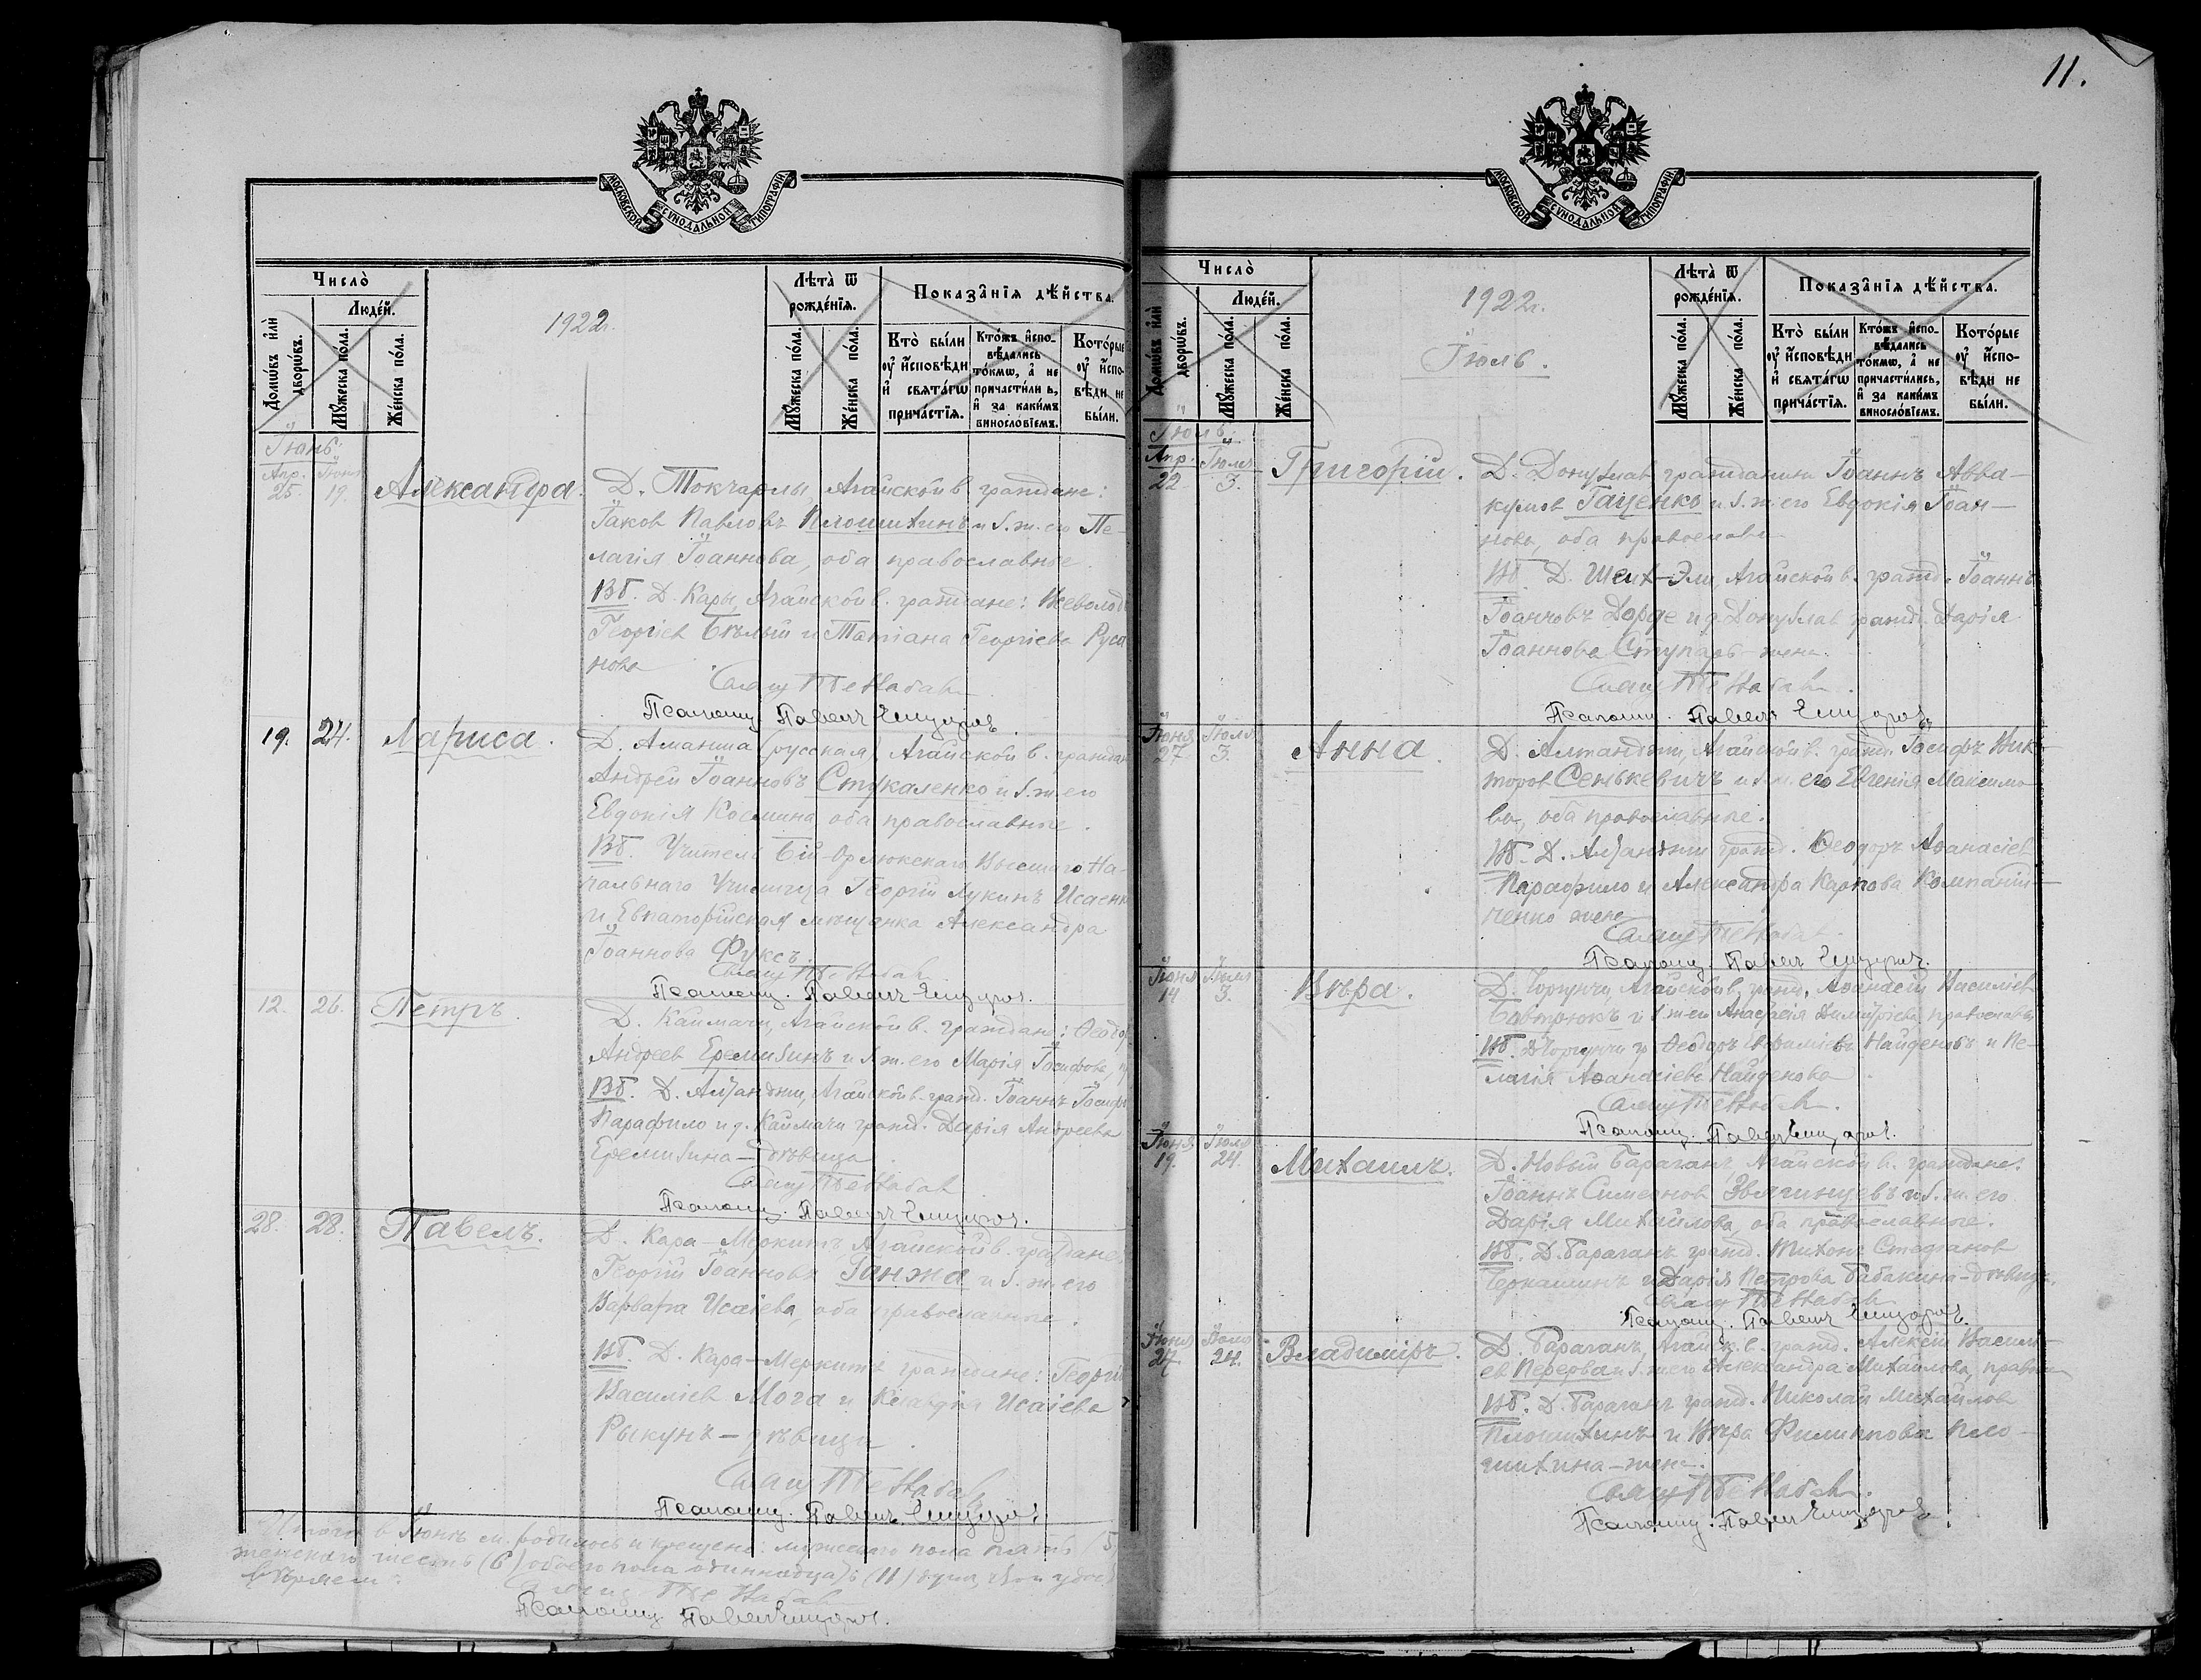 МОСКОВСКОЙ СѴНОДАЛЬНОЙ ТИПОГРАФІИ
Число̀
Люде́й.
Домѡ́въ и҆лѝ дворѡ́въ.
Мꙋ́жеска по́ла.
Же́нска по́ла.
1922г.
Лѣта̀ ѿ рожде́нїѧ.
Мꙋ́жеска по́ла.
Же́нска по́ла.
Показа̑нїѧ дѣ́йства.
Кто̀ бы́ли ᲂу҆ и҆сповѣ́ди и҆ свѧта́гѡ прича́стїѧ.
Кто́жъ и҆спо-
вѣ́дались то́кмѡ, а҆ не причасти́лись, и҆ за каки́мъ виносло́вїемъ.
Кото́рые ᲂу҆ и҆спо-
вѣ́ди не бы́ли.
Іюнь.
Апр. 25. Іюня 19. Александра.
Д. Токчарлы, Агайской в. граждане:
Іаков Павловъ Плошихинъ и з. ж. его Пе-
лагія Іоаннова, оба православные.
ВП. Д. Кары, Агайской в. граждане: Всеволод
Георгіев Бѣлый и Татіана Георгіева Руса
нова
Псаломщ. Павелъ
19. 24. Лариса.
Д. Аманша (русская) Агайской в. граждан
Андрей Іоанновъ Стукаленко и з. ж. его
Евдокія Косьмина, оба православные.
ВП. Учитель Бій-Орлюкскаго Высшаго На-
чальнаго Училища Георгій Лукинъ Исаенк
и Евпаторійская мѣщанка Александра
Іоаннова Фуксъ.
Псаломщ. Павелъ
12. 26. Петръ.
Д. Каймачи, Агайской в. граждане: Ѳеодор
Андреев Еремизинъ и з. ж. его Марія Іосифова,
ВП. Д. Алчанджи, Агайской в. гражд. Іоаннъ Іосиф
Парафило и д. Каймачи гражд. Дарія Андреева
Еремизина — дѣвица.
Псаломщ. Павелъ
28. 28. Павелъ.
Д. Кара-Меркитъ Агайской в. граждане:
Георгій Іоанновъ Ганжа и з. ж. его
Варвара Исаіева, оба православные.
ВП. Д. Кара-Меркитъ граждане: Георгій
Василіев Мога и Клавдія Исаіева
Рыкунъ — дѣвица.
Псаломщ. Павелъ
Итого в Іюнѣ м. родилось и крещено: мужескаго пола пять (5)
женскаго шесть (6) обоего пола одиннадцать (11) душ,
Псаломщ. Павелъ
11.
МОСКОВСКОЙ СѴНОДАЛЬНОЙ ТИПОГРАФІИ
Число̀
Люде́й.
Домѡ́въ и҆лѝ дворѡ́въ.
Мꙋ́жеска по́ла.
Же́нска по́ла.
1922г.
Іюль.
Лѣта̀ ѿ рожде́нїѧ.
Мꙋ́жеска по́ла.
Же́нска по́ла.
Показа̑нїѧ дѣ́йства.
Кто̀ бы́ли ᲂу҆ и҆сповѣ́ди и҆ свѧта́гѡ прича́стїѧ.
Кто́жъ и҆спо-
вѣ́дались то́кмѡ, а҆ не причасти́лись, и҆ за каки́мъ виносло́вїемъ.
Кото́рые ᲂу҆ и҆спо-
вѣ́ди не бы́ли.
Іюль.
Апр. 22 Іюля 3. Григорій.
Д. Донузлав гражданин Іоаннъ Авва-
кумов Гаценко и з. ж. его Евдокія Іоан-
нова, оба православн
ВП. Д. Шеих-Эли, Агайской в. гражд. Іоаннъ
Іоанновъ Дорде и д. Донузлав гражд. Дарія
Іоаннова Ступарь — жена.
Псаломщ. Павелъ
Іюня 27. Іюля 3. Анна.
Д. Алчанджи, Агайской в. гражд. Іосифъ Вик-
торов Сенькевичъ и з. ж. его Евгенія Максимо-
ва, оба православные.
ВП. Д. Алчанджи гражд. Ѳеодоръ Аѳанасіев
Парафило и Александра Карпова Компаній-
ченко жена
Псаломщ. Павелъ
Іюня 14 Іюля 3. Вѣра.
Агайской в. гражд. Аѳанасій Василіев
Бавтрюкъ и з. ж. его Анастасія Димитріева, православн
ВП. Ѳеодоръ Найденовъ и Пе-
лагія Аѳанасіева Найденова
Псаломщ. Павелъ
Іюня 19. Іюля 24. Михаилъ.
Д. Новый Бараган, Агайской в. граждане:
Іоаннъ Симеонов Звягинцевъ и з. ж. его
Дарія Михайлова, оба православные.
ВП. Д. Бараганъ гражд. Тихонъ Стефанов
Черкашинъ и Дарія Петрова Табакина — дѣвица.
Псаломщ. Павелъ
Іюня 27. Іюля 24. Владиміръ.
Д. Бараганъ, Агайск. в. гражд. Алексій Василі-
ев Перерва и з. ж. его Александра Михайлова, правосл
ВП. Д. Бараганъ гражд. Николай Михайлов
Плошихинъ и Вѣра Филиппова Пло-
шихина — жена.
Псаломщ. Павелъ